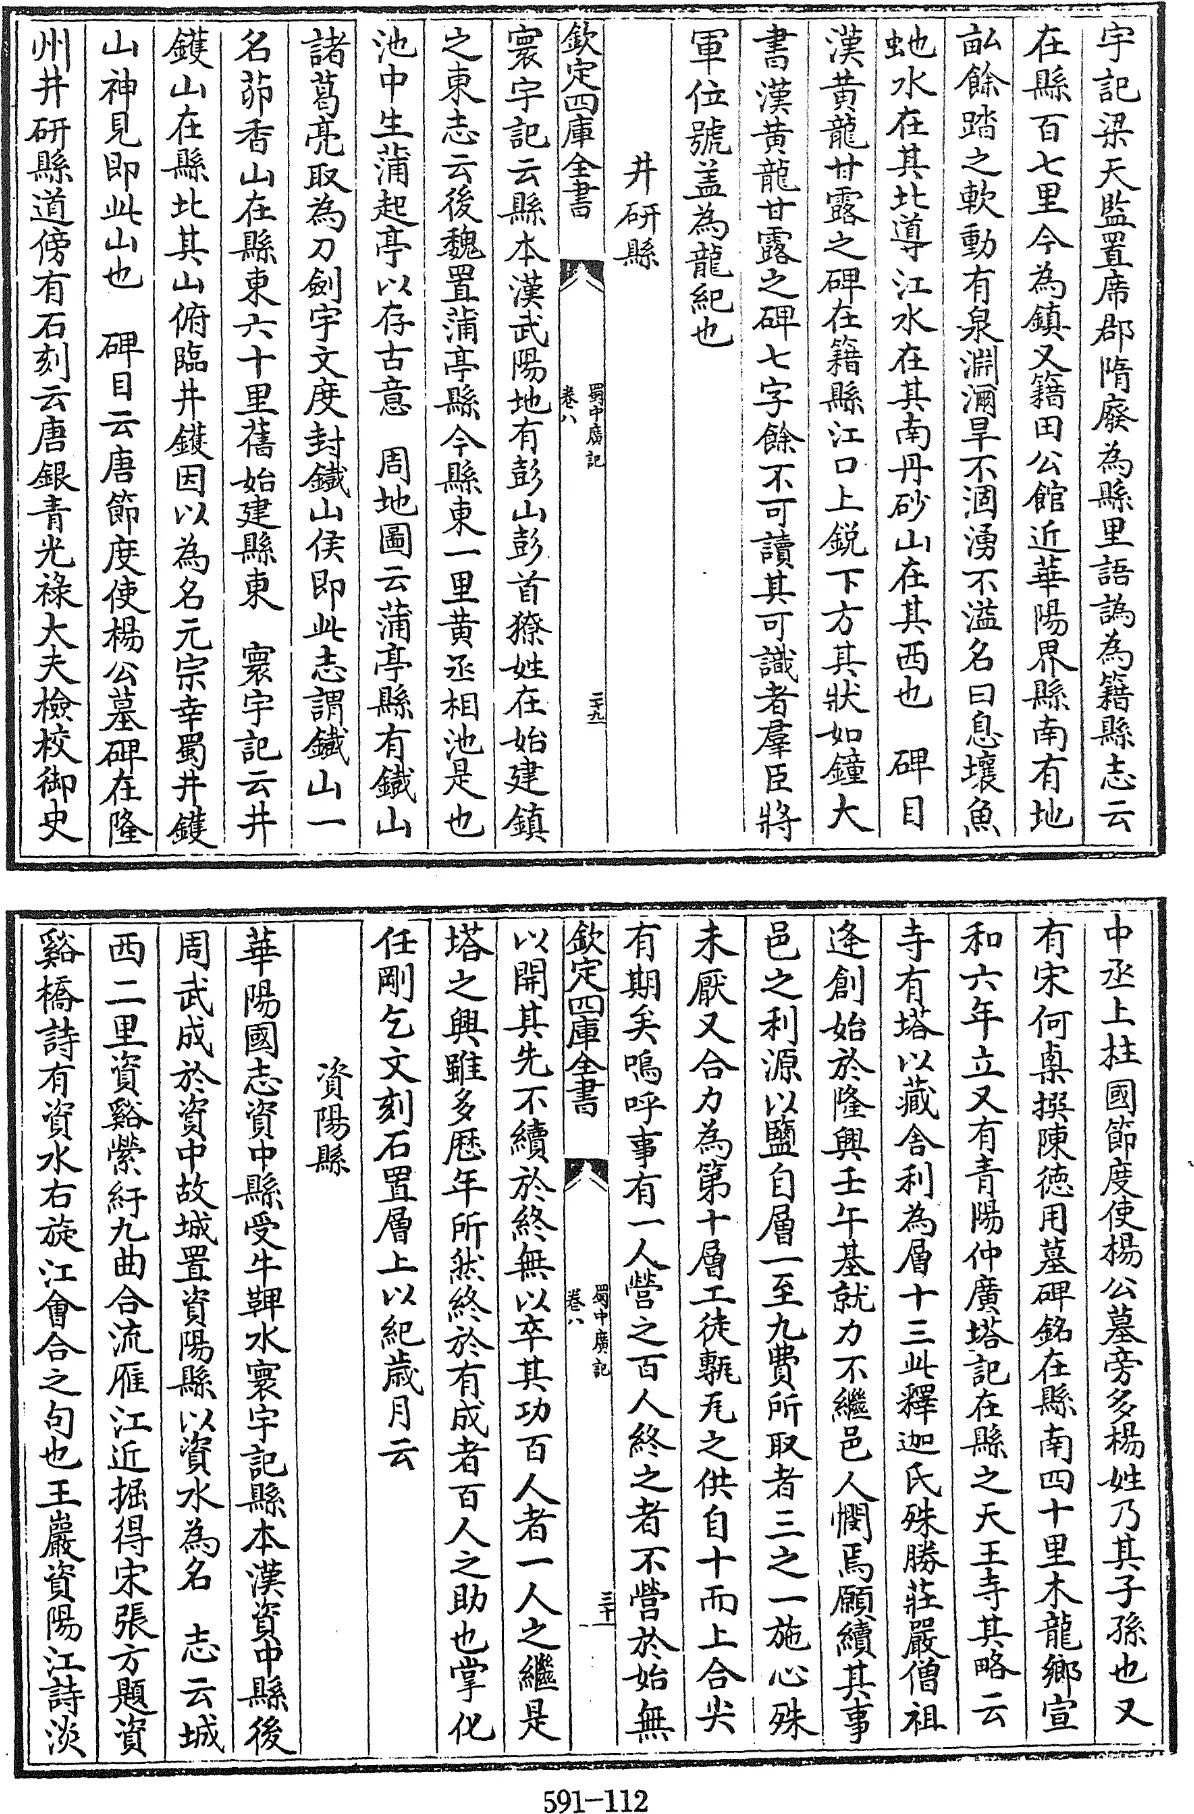 宇記梁天監置席郡隋廢為縣里語譌為籍縣志云
在縣百七里今為鎮又籍田公館近華陽界縣南有地
畝餘踏之軟動有泉淵瀰旱不涸湧不溢名曰息壤魚
虵水在其北導江水在其南丹砂山在其西也 碑目
漢黄龍甘露之碑在籍縣江口上鋭下方其狀如鐘大
書漢黄龍甘露之碑七字餘不可讀其可識者羣臣將
軍位號盖為龍紀也
井研縣
欽定四庫全書
蜀中廣記
卷八
二十九
寰宇記云縣本漢武陽地有彭山彭首獠姓在始建鎮
之東志云後魏置蒲亭縣今縣東一里黄丞相池是也
池中生蒲起亭以存古意 周地圖云蒲亭縣有鐵山
諸葛亮取為刀劍宇文度封鐵山侯即此志謂鐵山一
名茆香山在縣東六十里舊始建縣東 寰宇記云井
鑊山在縣北其山俯臨井鑊因以為名元宗幸蜀井鑊
山神見即此山也 碑目云唐節度使楊公墓碑在隆
州井研縣道傍有石刻云唐銀青光祿大夫檢校御史
中丞上柱國節度使楊公墓旁多楊姓乃其子孫也又
有宋何㮚撰陳徳用墓碑銘在縣南四十里木龍鄉宣
和六年立又有青陽仲廣塔記在縣之天王寺其略云
寺有塔以藏舍利為層十三此釋迦氏殊勝莊嚴僧祖
逢創始於隆興壬午基就力不繼邑人憫焉願續其事
邑之利源以鹽自層一至九費所取者三之一施心殊
未厭又合力為第十層工徒甎瓦之供自十而上合尖
有期矣嗚呼事有一人營之百人終之者不營於始無
欽定四庫全書
蜀中廣記
卷八
三十
以開其先不續於終無以卒其功百人者一人之繼是
塔之興雖多歴年所然終於有成者百人之助也掌化
任剛乞文刻石置層上以紀歳月云
資陽縣
華陽國志資中縣受牛鞞水寰宇記縣本漢資中縣後
周武成於資中故城置資陽縣以資水為名 志云城
西二里資谿縈紆九曲合流雁江近掘得宋張方題資
谿橋詩有資水右旋江會合之句也王巖資陽江詩淡
591-112